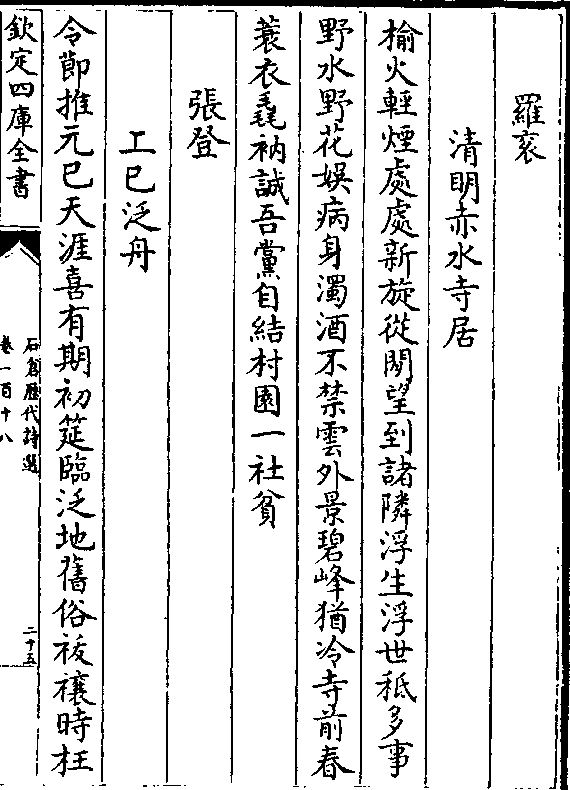 羅衮
清明赤水寺居
榆火輕煙處處新旋從閒望到諸隣浮生浮世秪多事
野水野花娱病身濁酒不禁雲外景碧峰猶冷寺前春
蓑衣毳衲誠吾黨自結村園一社貧
張登
工巳泛舟
令節推元巳天涯喜有期初筵臨泛地舊俗祓禳時枉
欽定四庫全書
石倉歷代詩選
卷一百十八
二十五